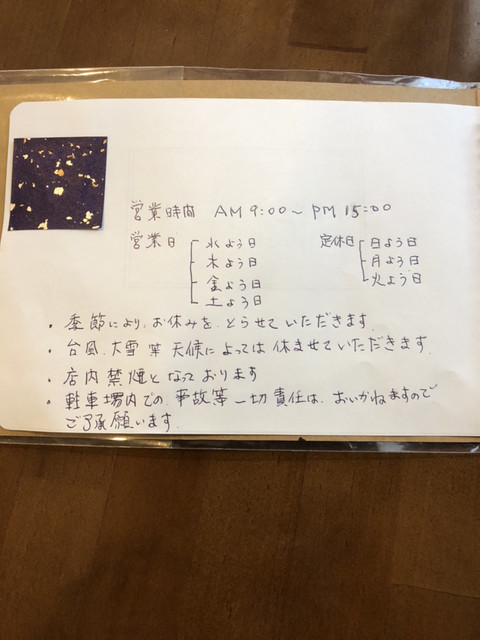 営業時間 AM 9:00〜PM 15:00
営業日 水よう日 定休日 日よう日
木よう日 月よう日
金よう日 火よう日
土よう日
・季節により、お休みを、とらせていただきます。
・台風、大雪 等 天候によっては 休ませていただきます。
・店内 禁煙となっております
・駐車場内での、事故等 一切 責任は、おいかねますので
ご了承願います。